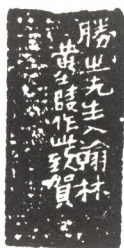 勝之先生入翰林
黄士陵作此致賀